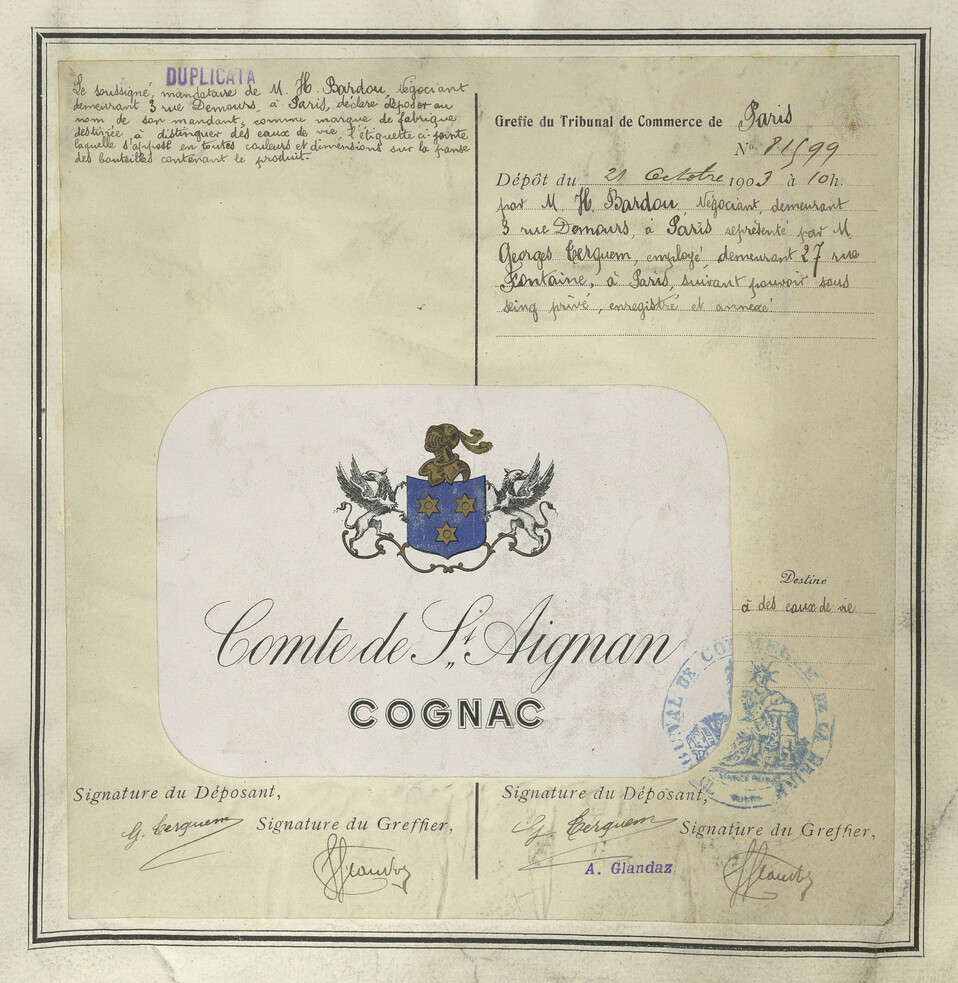 DUPLICATA
Le soussigné, mandataire de M. H. Bardou, Négociant
demeurant 3 rue Demours, à Paris, déclare déposer au
nom de son mandant, comme marque de fabrique
destinée, à distinguer des eaux de vie, l'étiquette ci-jointe
laquelle s'appose en toutes couleurs et dimensions sur la panse
des bouteilles contenant le produit.
Greffe du Tribunal de Commerce de Paris
N° 81599
Dépôt du 21 Octobre 1903 à 10h.
par M. H. Bardou Négociant, demeurant
3 rue Demours, à Paris représenté par M.
Georges Cerquem, employé, demeurant 27 rue
Fontaine, à Paris, suivant pouvoir sous
seing privé, enregistré et annexé.
Comte de St Aignan
COGNAC
Destiné
à des eaux de vie
TRIBUNAL DE COMMERCE DE LA SEINE
Signature du Déposant,
G. Cerquem
Signature du Greffier,
Signature du Déposant,
G. Cerquem
Signature du Greffier,
A. Glandaz